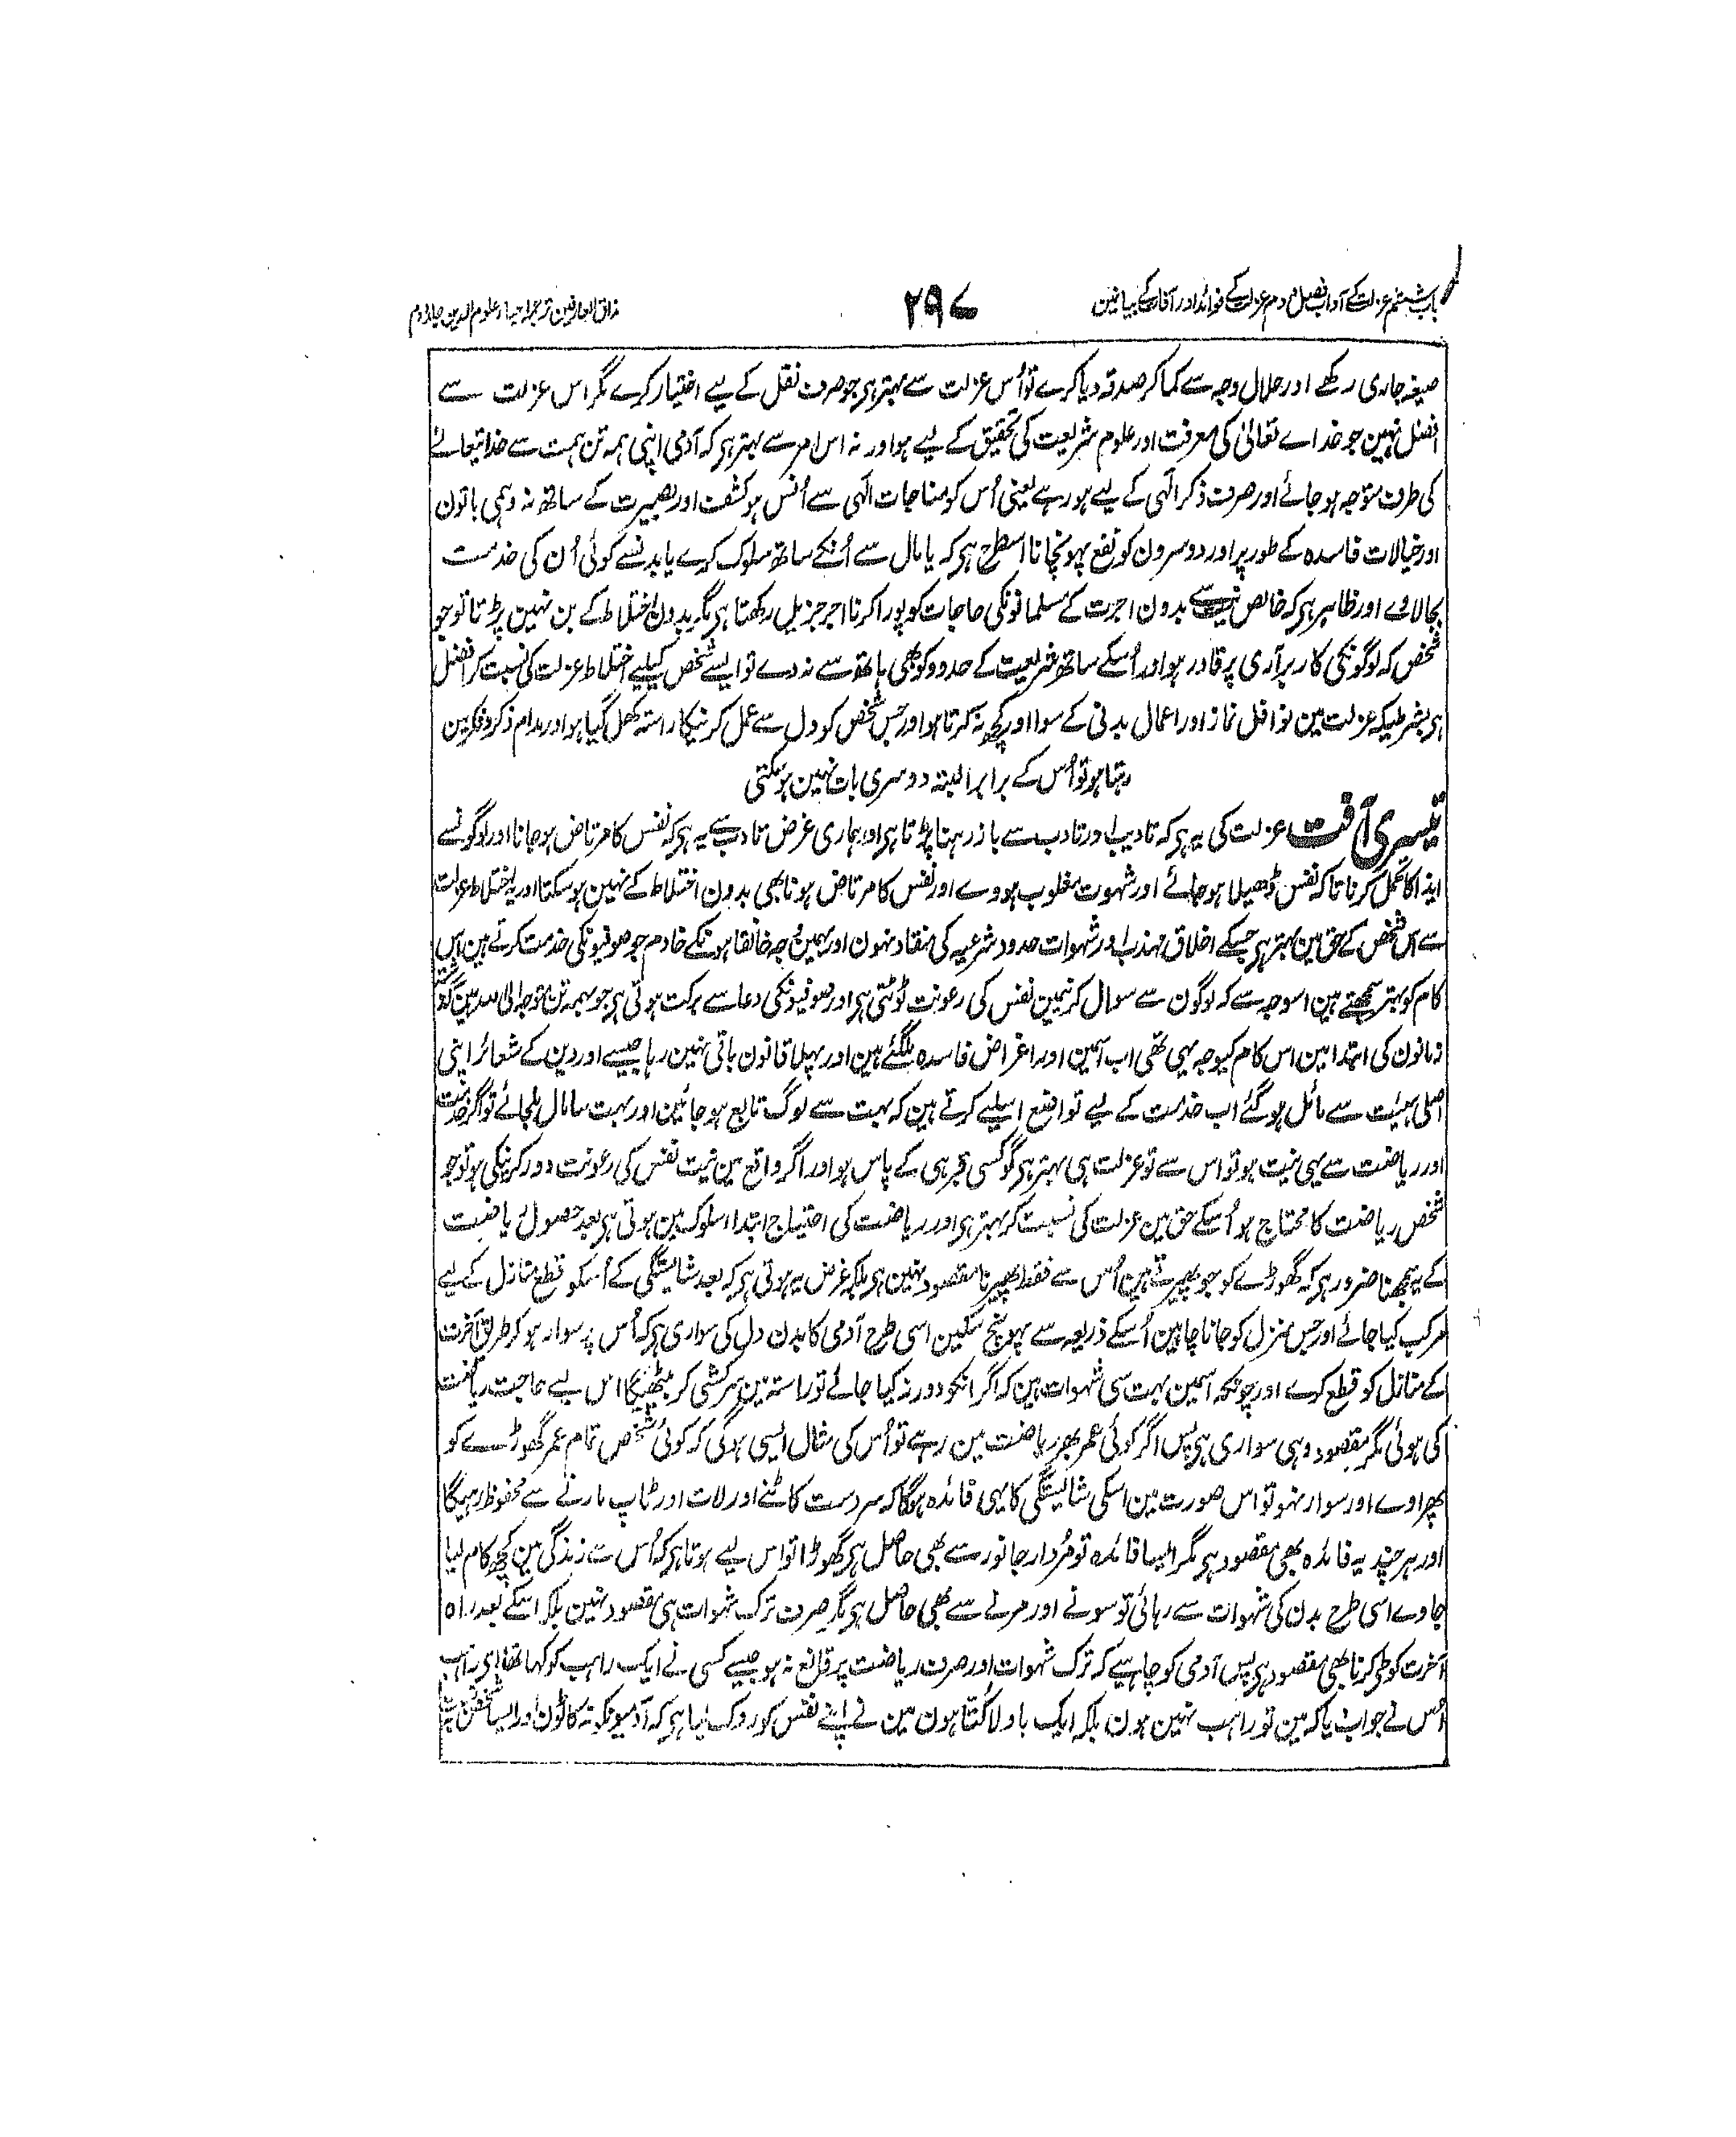 باب ششم عزلت کے آداب فصل دوم عزلت کے فوائد اور آفات کے بیان مین
۲۹۷
مذاق العارفین ترجمہ احیاء علوم الدین جلد دوم
صیغہ جاری رکھے اور حلال وجہ سے کماکر صدقہ دیا کرے تو اُس عزلت سے بہتر ہی جو صرف نفل کے لیے اختیار کرے مگر اس عزلت سے
افضل نہین جو خداے تعالیٰ کی معرفت اور علوم شریعت کی تحقیق کے لیے ہو اور نہ اس امر سے بہتر ہی کہ آدمی اپنی ہمہ تن ہمت سے خدا تعالے
کی طرف متوجہ ہو جائے اور صرف ذکر الٰہی کے لیے ہو رہے یعنی اُس کو مناجات الٰہی سے اُنس ہو کشف اور بصیرت کے ساتھ نہ وہمی باتون
اور خیالات فاسدہ کے طور پر اور دوسرون کو نفع پہونچانا اسطرح ہی کہ یا مال سے اُنکے ساتھ سلوک کرے یا بدنسے کوئی اُن کی خدمت
بجالاوے اور ظاہر ہی کہ خالص نیت سے بدون اجرت کے مسلمانونکی حاجات کو پورا کرنا اجر جزیل رکھتا ہی مگر بدون اختلاط کے بن نہین پڑتا تو جو
شخص کہ لوگونکی کاربرآری پر قادر ہو اور اُسکے ساتھ شریعت کے حدود کو بھی ہاتھ سے ندے تو ایسے شخص کیلیے اختلاط عزلت کی نسبت کر افضل
ہی بشرطیکہ عزلت مین نوافل نماز اور اعمال بدنی کے سوا اور کچھ نہ کرتا ہو اور جس شخص کو دل سے عمل کرنیکا راستہ کھل گیا ہو اور مدام ذکر و فکر مین
رہتا ہو تو اُس کے برابر البتہ دوسری بات نہین ہو سکتی
تیسری آفت عزلت کی یہ ہی کہ تادیب اور تادب سے باز رہنا پڑتا ہی اور ہماری غرض تادب سے یہ ہی کہ نفس کا مرتاض ہو جانا اور لوگونسے
ایذا کا تحمل کرنا تاکہ نفس ڈھیلا ہو جائے اور شہوت مغلوب ہووے اور نفس کا مرتاض ہونا بھی بدون اختلاط کے نہین ہو سکتا اور یہ اختلاط عزلت
سے اس شخص کے حق مین بہتر ہی جسکے اخلاق مہذب اور شہوات حدود شرعیہ کی منقاد نہون اور بہمین وجہ خانقاہونکے خادم جو صوفیونکی خدمت کرتے ہین اس
کام کو بہتر سمجھتے ہین اسوجہ سے کہ لوگون سے سوال کرنیمین نفس کی رعونت ٹوٹتی ہی اور صوفیونکی دعا سے برکت ہوتی ہی جو ہمہ تن متوجہ الی اللہ ہین گذشتہ
زمانون کی ابتدا مین اس کام کیوجہ یہی تھی اب آمین اور اغراض فاسدہ ملگئے ہین اور پہلا قانون باقی نہین رہا جیسے اور دین کے شعائر اپنی
اصلی ہیئت سے مائل ہو گئے اب خدمت کے لیے تواضع اسلیے کرتے ہین کہ بہت سے لوگ تابع ہو جائین اور بہت سا مال ملجائے تو اگر خدمت
اور ریاضت سے یہی نیت ہو تو اس سے تو عزلت ہی بہتر ہی گو کسی قبر ہی کے پاس ہو اور اگر واقع مین نیت نفس کی رعونت دور کرنیکی ہو تو جو
شخص ریاضت کا محتاج ہو اُسکے حق مین عزلت کی نسبت کر بہتر ہی اور ریاضت کی احتیاج ابتداء سلوک مین ہوتی ہی بعد حصول ریاضت
کے یہ سمجھنا ضرور ہی کہ گھوڑے کو جو پھیرتے ہین اُس سے فقط پھیرنا مقصود نہین ہی بلکہ غرض یہ ہوتی ہی کہ بعد شائستگی کے اُسکو قطع منازل کے لیے
مرکب کیا جائے اور جس منزل کو جانا چاہین اُسکے ذریعہ سے پہونچ سکین اسی طرح آدمی کا بدن دل کی سواری ہی کہ اُس پر سوار ہو کر طریق آخرت
کے منازل کو قطع کرے اور چونکہ اسمین بہت سی شہوات ہین کہ اگر انکو دور نہ کیا جائے تو راستہ مین سرکشی کر بیٹھیگا اس لیے حاجت ریاضت
کی ہوئی مگر مقصود وہی سواری ہی پس اگر کوئی عمر بھر ریاضت مین رہے تو اُس کی مثال ایسی ہو گی کہ کوئی شخص تمام عمر گھوڑے کو
پھراوے اور سوار نہو تو اس صورت مین اسکی شائستگی کا یہی فائدہ ہوگا کہ سردست کاٹنے اور لات اور ٹاپ مارنے سے محفوظ رہیگا
اور ہر چند یہ فائدہ بھی مقصود ہی مگر ایسا فائدہ تو مُردار جانور سے بھی حاصل ہی گھوڑا تو اس لیے ہوتا ہی کہ اُس سے زندگی مین کچھ کام لیا
جاوے اسی طرح بدن کی شہوات سے رہائی تو سونے اور مرنے سے بھی حاصل ہی مگر صرف ترک شہوات ہی مقصود نہین بلکہ اسکے بعد راہ
آخرت کو طی کرنا بھی مقصود ہی پس آدمی کو چاہیے کہ ترک شہوات اور صرف ریاضت پر قانع نہ ہو جیسے کسی نے ایک راہب کو کہا تھا ای راہب
اُس نے جواب دیا کہ مین تو راہب نہین ہون بلکہ ایک باولا کُتّا ہون مین نے اپنے نفس کو روک لیا ہی کہ آدمیونکو نہ کاٹون اور ایسا شخص